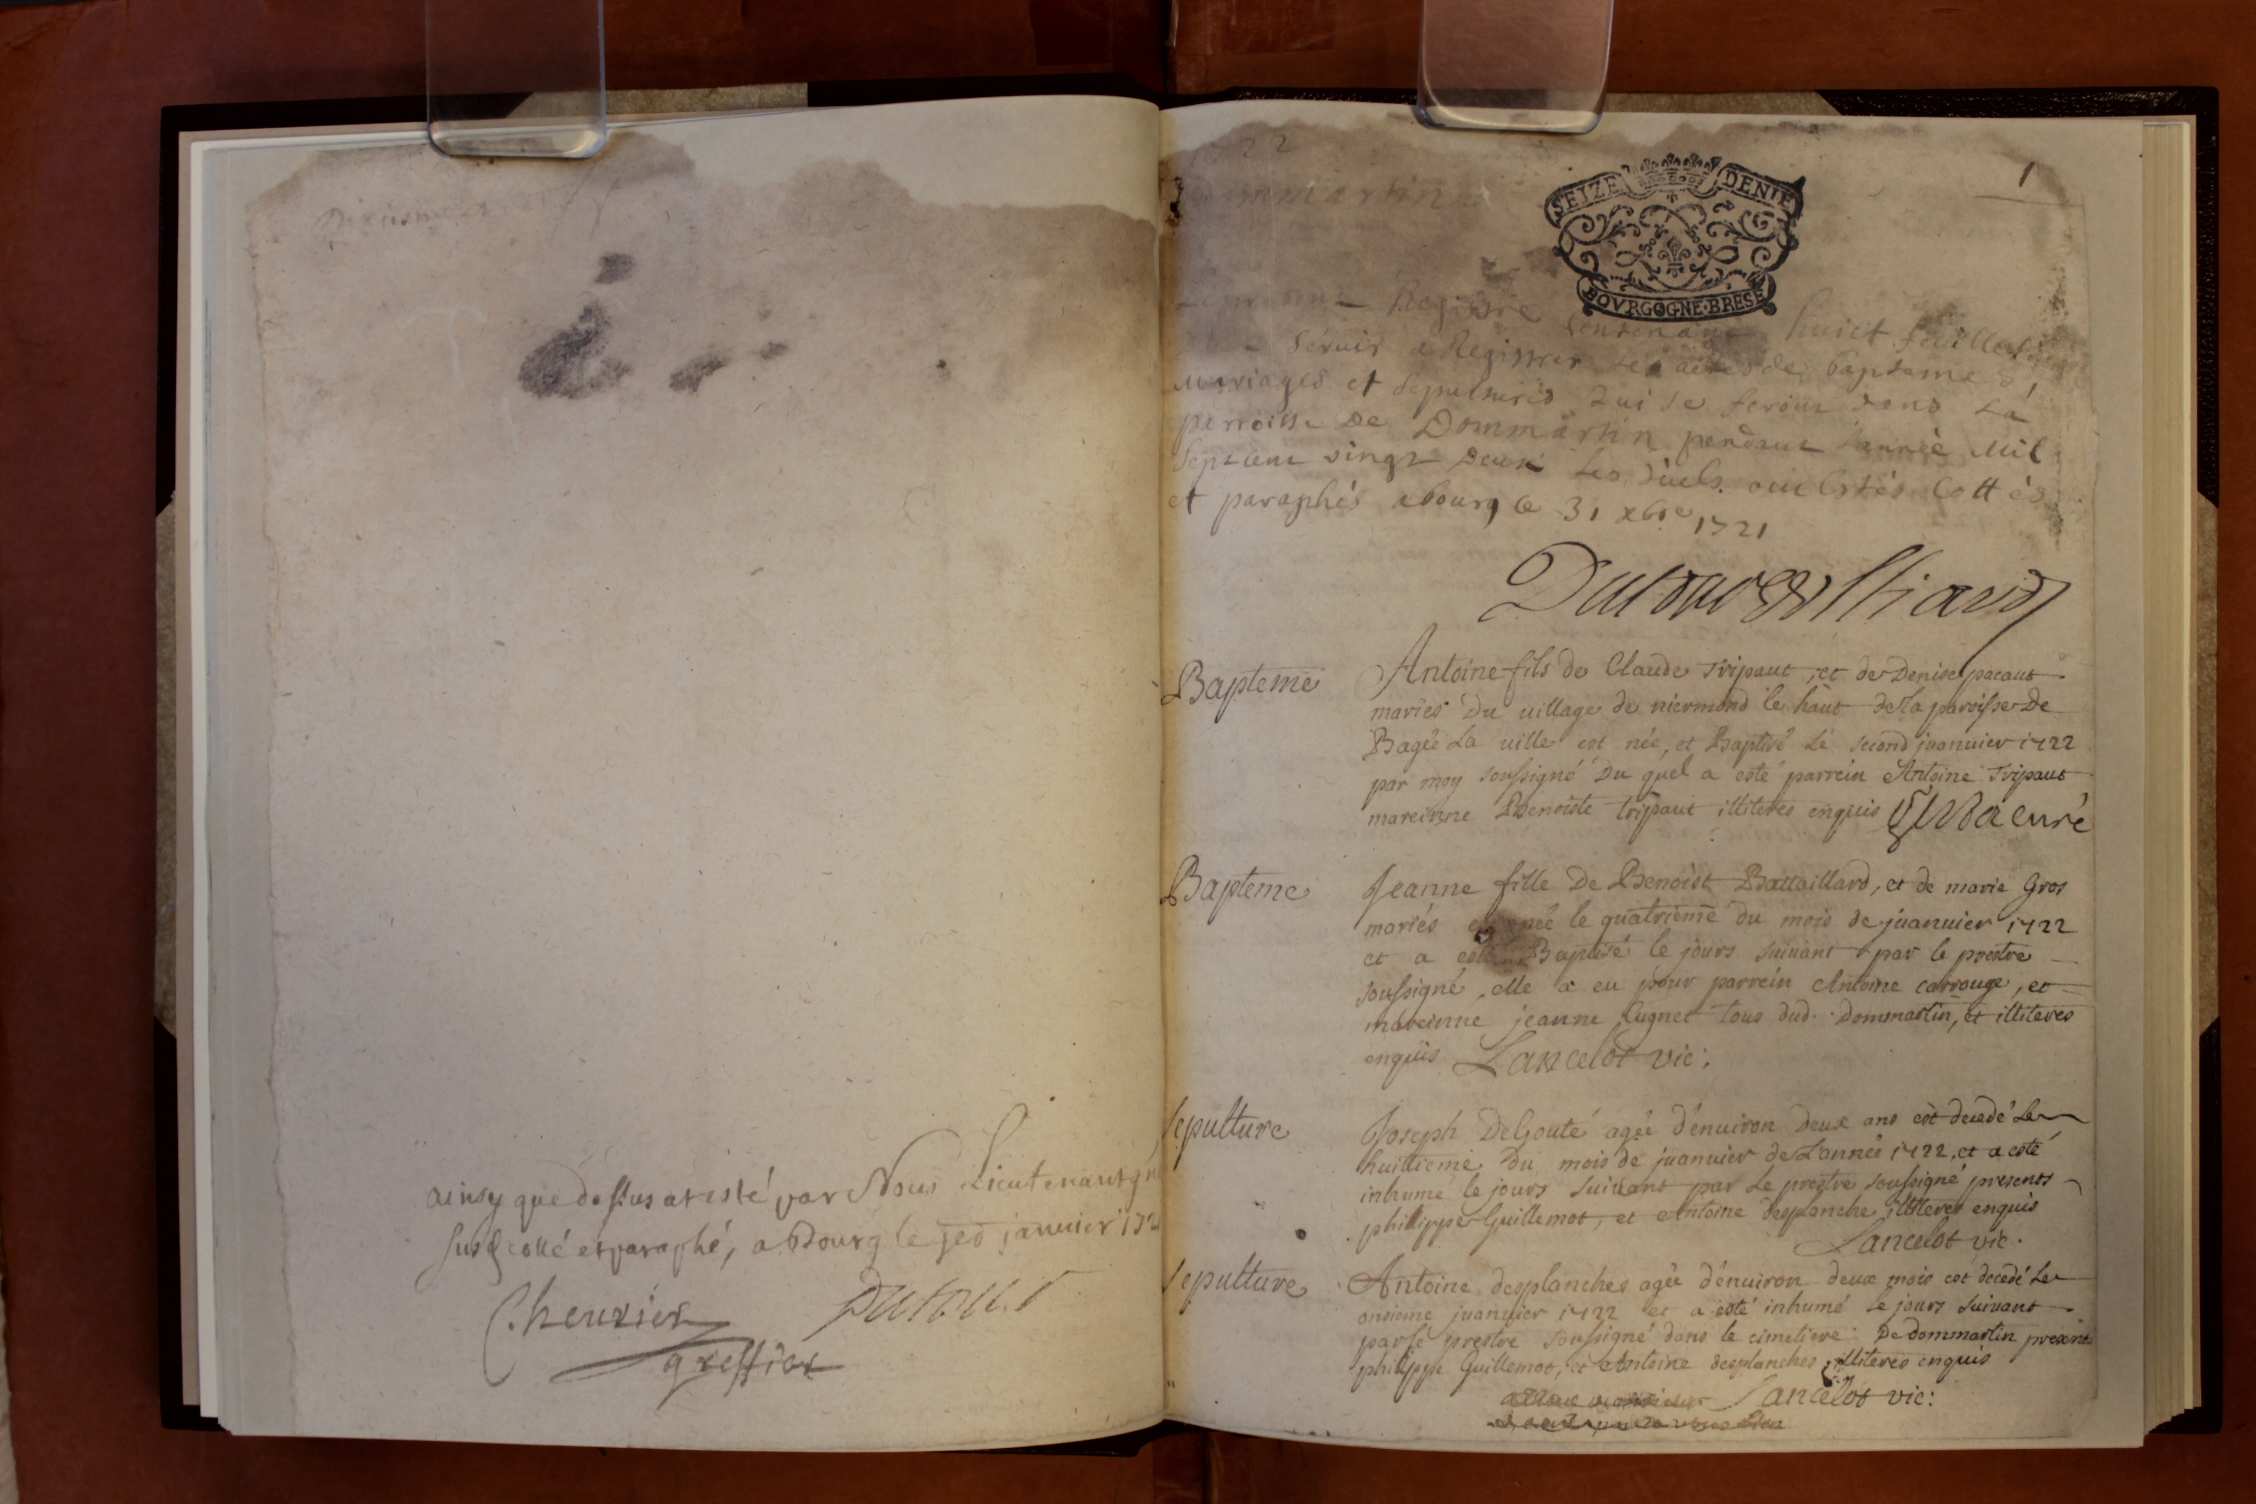 ainsy que dessus atesté par Nous Lieutenant
cotté et paraphé, a Bourg le janvier
Cheurier Dutour
greffier
22
1
SEIZE DENIE
BOVRGOGNE·BRESE
Dommartin
Le present Registre contenant huict feuillets
servir a Registrer les actes de baptemes,
mariages et sepultures qui se feront dans la
parroisse De Dommartin pendant l'année Mil
sept cent vingt deux les quels ont estés Cottés
et paraphés a bourg le 31 xbre 1721
Bapteme
Antoine fils de Claude tripaut, et de Denise pacaut
mariés Du village de niermond le haut de la paroisse De
Bagée La ville est née, et Baptisé Le second juanuier 1722
par moy soussigné Du quel a esté parrein Antoine Tripaut
mareinne Benoiste tripaut illiteres enquis curé
Bapteme
Jeanne fille De Benoist Battaillard, et de marie Gros
mariés est née le quatrieme du mois de juanuier 1722
et a esté Baptisé le jours suivant par le prestre
soussigné, elle a eu pour parrein Antoine carrouge, et
mareinne jeanne Cugnet tous dud. Dommartin, et illiteres
enquis Lancelot vic:
Sepulture
Joseph DeGouté agée d'enuiron Deux ans est decedé Le
huittieme du mois de juanuier de L'année 1722, et a esté
inhumé le jours suivant par Le prestre soussigné presents
philippe Guillemot, et Antoine desplanche illiteres enquis
Lancelot vic.
Sepulture
Antoine desplanches agée d'enuiron deux mois est decedé Le
onsieme juanuier 1722 et a esté inhumé le jours suivant
par le prestre soussigné dans le cimetiere De dommartin present
philippe Guillemot, et Antoine desplanches illiteres enquis
Lancelot vic: